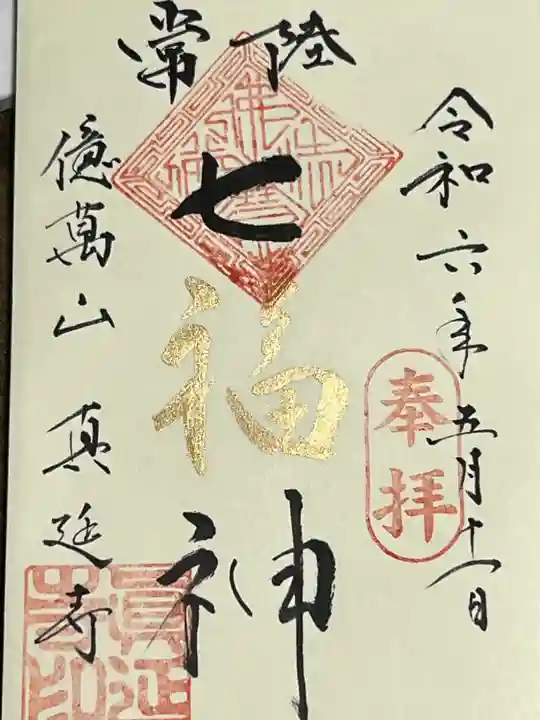 令和六年五月十一日
奉拝
常陸
七福神
億萬山 真延寿